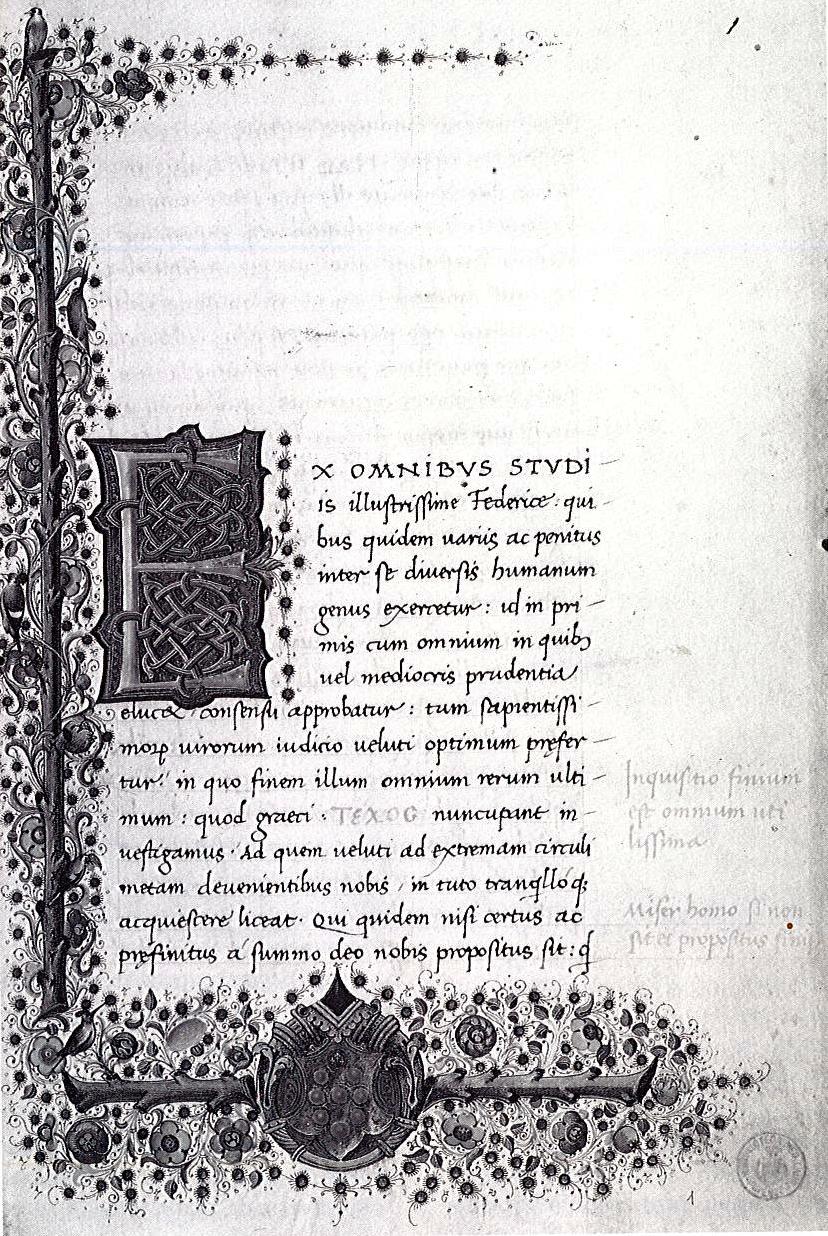 EX OMNIBVS STVDI
is illustrissime Federice: qui
bus quidem uariis ac penitus
inter se diuersis humanum
genus exercetur: id in pri
mis cum omnium in quibꝫ
uel mediocris prudentia
elucet consensu approbatur: tum sapientissi
moꝝ uirorum iudicio ueluti optimum pręfer
tur: in quo finem illum omnium rerum ulti
mum: quod graeci· ΤΕΛΟC nuncupant in
uestigamus· Ad quem ueluti ad extremam circuli
metam deuenientibus nobis, in tuto tranqllo q;
acquiescere liceat· Qui quidem nisi certus ac
pręfinitus a summo deo nobis propositus sit: ꝗ
Inquisitio finium
est omnium uti
lissima
Miser homo si non
sit ei propositus finis
1